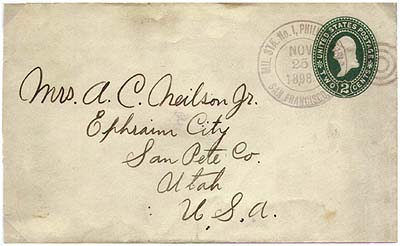 MIL. STA. No. 1, PHIL
NOV
25
1898
SAN FRANCISCO
UNITED STATES POSTAGE
TWO 2 CENTS
Mrs. A. C. Neilson Jr.
Ephraim City
San Pete Co.
Utah
U.S.A.